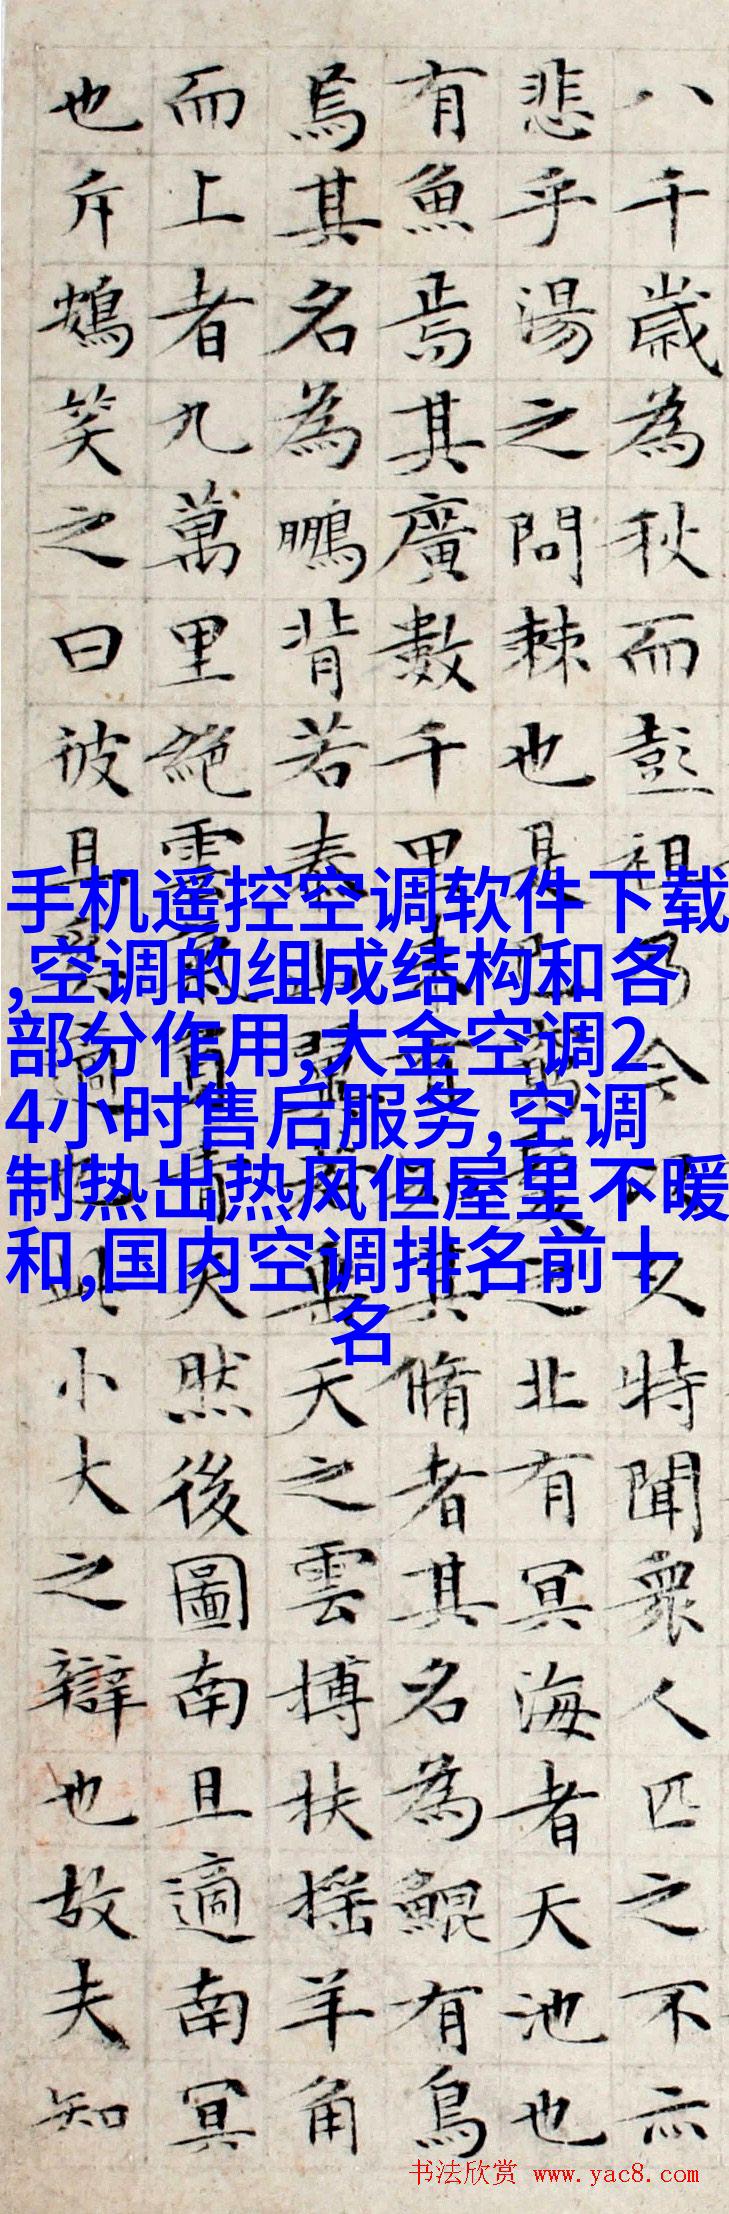 八千歲為秋而彭祖乃今以久特聞衆人匹之不亦
悲乎湯之問棘也是已窮髮之北有冥海者天池也
有魚焉其廣數千里未有知其脩者其名為鯤有鳥
焉其名為鵬背若泰山翼若垂天之雲搏扶搖羊角
而上者九萬里絕雲氣負青天然後圖南且適南冥
也斥鴳笑之曰彼且奚適也此小大之辯也故夫知
手机遥控空调软件下载
,空调的组成结构和各
部分作用,大金空调2
4小时售后服务,空调
制热出热风但屋里不暖
和,国内空调排名前十
名
书法欣赏 www.yac8.com